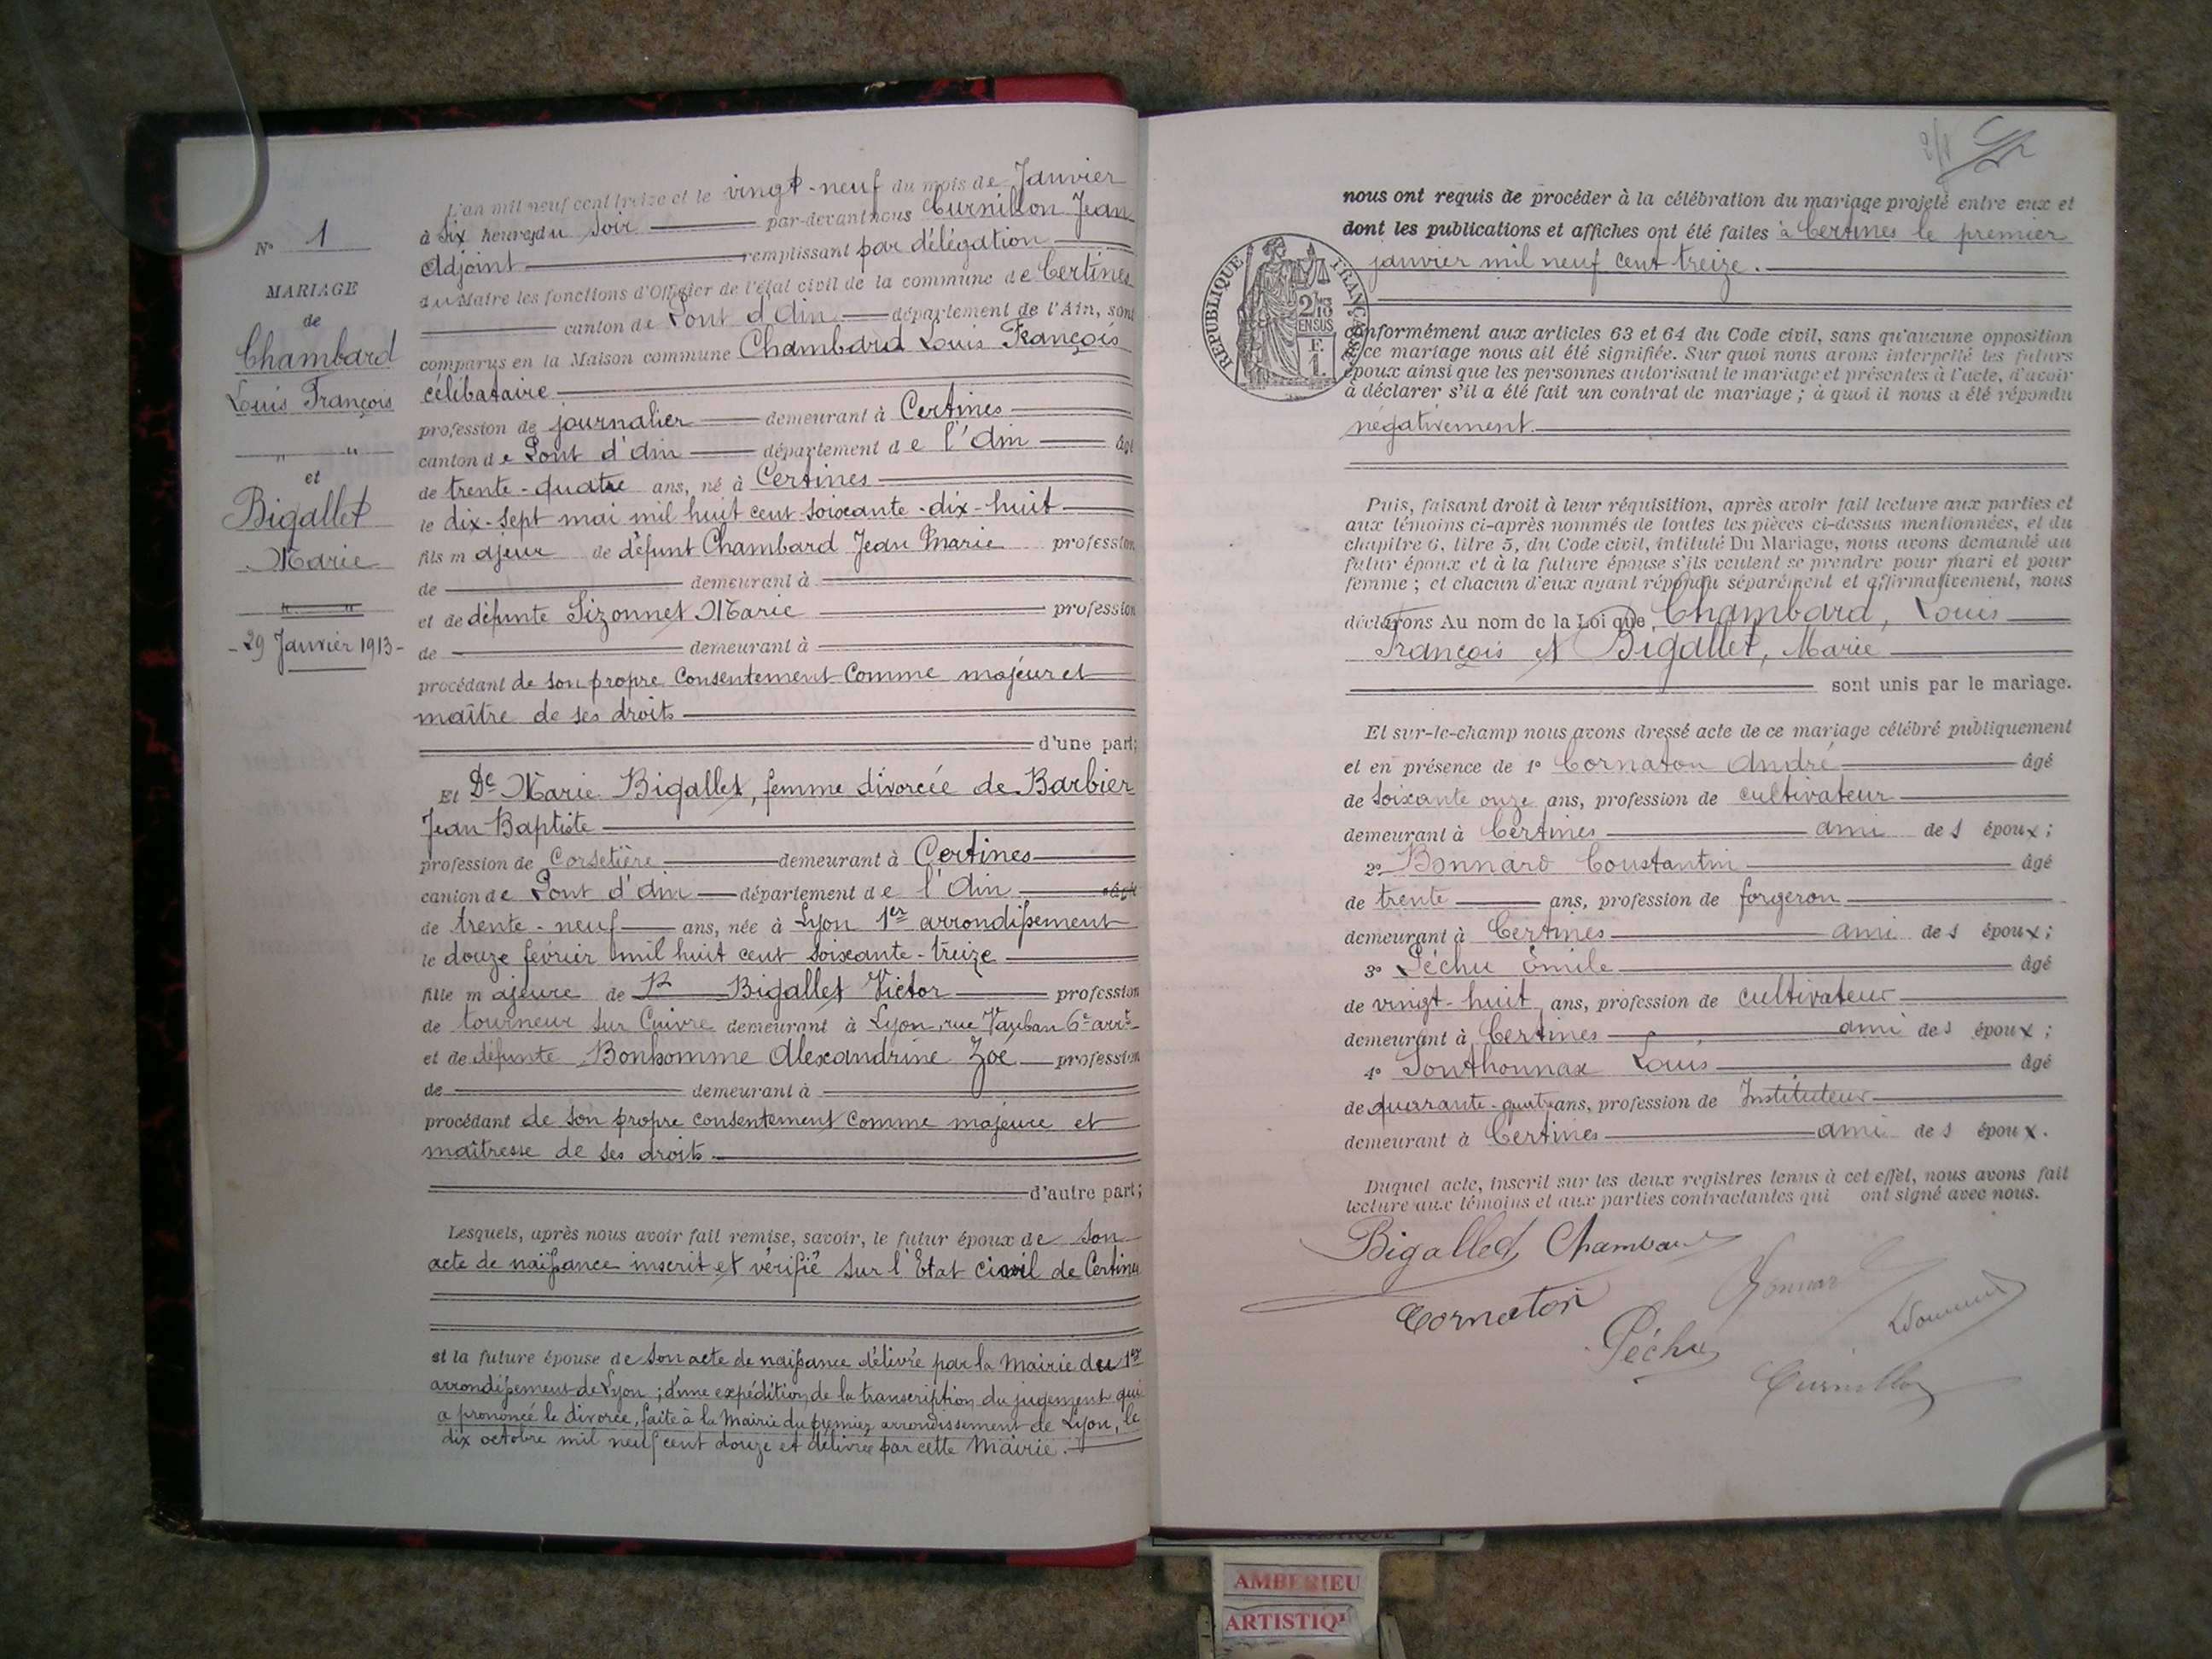 N° 1
MARIAGE
de
Chambard
Louis François
et
Bigallet
Marie
- 29 Janvier 1913 -
L'an mil neuf cent treize et le vingt-neuf du mois de Janvier
à Six heures du Soir par-devant nous Curnillon Jean
Adjoint remplissant par délégation
du Maire les fonctions d'Officier de l'état civil de la commune de Certines
canton de Pont d'Ain département de l'Ain, sont
comparus en la Maison commune Chambard Louis François
célibataire
profession de journalier demeurant à Certines
canton de Pont d'Ain département de l'Ain âgé
de trente-quatre ans, né à Certines
le dix-sept mai mil huit cent soixante-dix-huit
fils majeur de défunt Chambard Jean Marie profession
de demeurant à
et de défunte Lizonnet Marie profession
de demeurant à
procédant de son propre Consentement Comme majeur et
maître de ses droits
d'une part;
Et De Marie Bigallet, femme divorcée de Barbier
Jean Baptiste
profession de Corsetière demeurant à Certines
canton de Pont d'Ain département de l'Ain âgée
de trente-neuf ans, née à Lyon 1er arrondissement
le douze février mil huit cent soixante-treize
fille majeure de Bigallet Victor profession
de tourneur sur Cuivre demeurant à Lyon, rue Vauban 6e arrt
et de défunte Bonhomme Alexandrine Zoé profession
de demeurant à
procédant de son propre consentement comme majeure et
maîtresse de ses droits
d'autre part;
Lesquels, après nous avoir fait remise, savoir, le futur époux de son
acte de naissance inscrit et vérifié sur l'Etat civil de Certines
et la future épouse de son acte de naissance délivré par la Mairie du 1er
arrondissement de Lyon ; d'une expédition de la transcription du jugement qui
a prononcé le divorce, faite à la Mairie du premier arrondissement de Lyon, le
dix octobre mil neuf cent douze et délivrée par cette Mairie.
nous ont requis de procéder à la célébration du mariage projeté entre eux et
dont les publications et affiches ont été faites à Certines le premier
janvier mil neuf cent treize.
RÉPUBLIQUE FRANÇAISE
2/10
EN SUS
F.
1.
conformément aux articles 63 et 64 du Code civil, sans qu'aucune opposition
à ce mariage nous ait été signifiée. Sur quoi nous avons interpellé les futurs
époux ainsi que les personnes autorisant le mariage et présentes à l'acte, d'avoir
à déclarer s'il a été fait un contrat de mariage ; à quoi il nous a été répondu
négativement.
Puis, faisant droit à leur réquisition, après avoir fait lecture aux parties et
aux témoins ci-après nommés de toutes les pièces ci-dessus mentionnées, et du
chapitre 6, titre 5, du Code civil, intitulé Du Mariage, nous avons demandé au
futur époux et à la future épouse s'ils veulent se prendre pour mari et pour
femme ; et chacun d'eux ayant répondu séparément et affirmativement, nous
déclarons Au nom de la Loi que Chambard, Louis
François et Bigallet, Marie
sont unis par le mariage.
Et sur-le-champ nous avons dressé acte de ce mariage célébré publiquement
et en présence de 1° Cornaton André âgé
de soixante onze ans, profession de cultivateur
demeurant à Certines ami des époux ;
2° Bonnard Constantin âgé
de trente ans, profession de forgeron
demeurant à Certines ami des époux ;
3° Péchu Émile âgé
de vingt-huit ans, profession de cultivateur
demeurant à Certines ami des époux ;
4° Sonthonnax Louis âgé
de quarante-quatre ans, profession de Instituteur
demeurant à Certines ami des époux.
Duquel acte, inscrit sur les deux registres tenus à cet effet, nous avons fait
lecture aux témoins et aux parties contractantes qui ont signé avec nous.
Bigallet Chambard
Cornaton
Péchu
Curnillon
AMBERIEU
ARTISTIQU